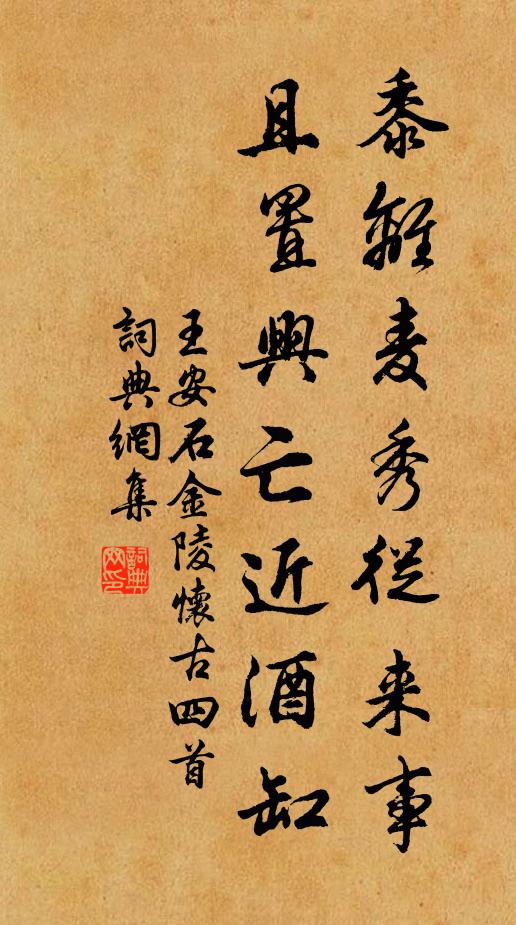 黍離麦秀從来事
且置興亡近酒缸
王安石金陵懷古四首
詞典網集
詞典網印